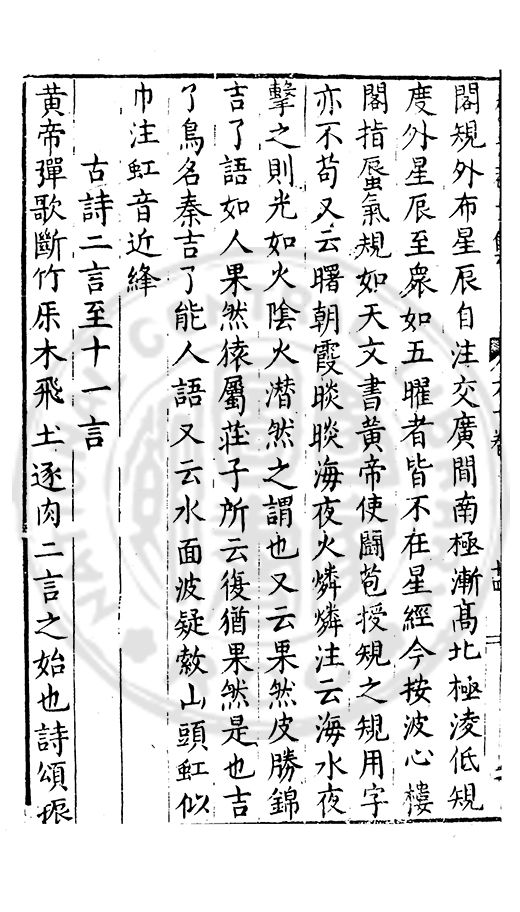 閣規外布星辰自注交廣間南極漸髙北極淩低規
度外星辰至衆如五曜者皆不在星經今按波心樓
閣指蜃氣規如天文書黄帝使鬪苞授規之規用字
亦不苟又云曙朝霞睒睒海夜火燐燐注云海水夜
擊之則光如火陰火潜然之謂也又云果然皮勝錦
吉了語如人果然猿屬荘子所云復猶果然是也吉
了鳥名秦吉了能人語又云水面波疑縠山頭虹似
巾注虹音近絳
古詩二言至十一言
黄帝彈歌斷竹屬木飛土逐肉二言之始也詩頌振